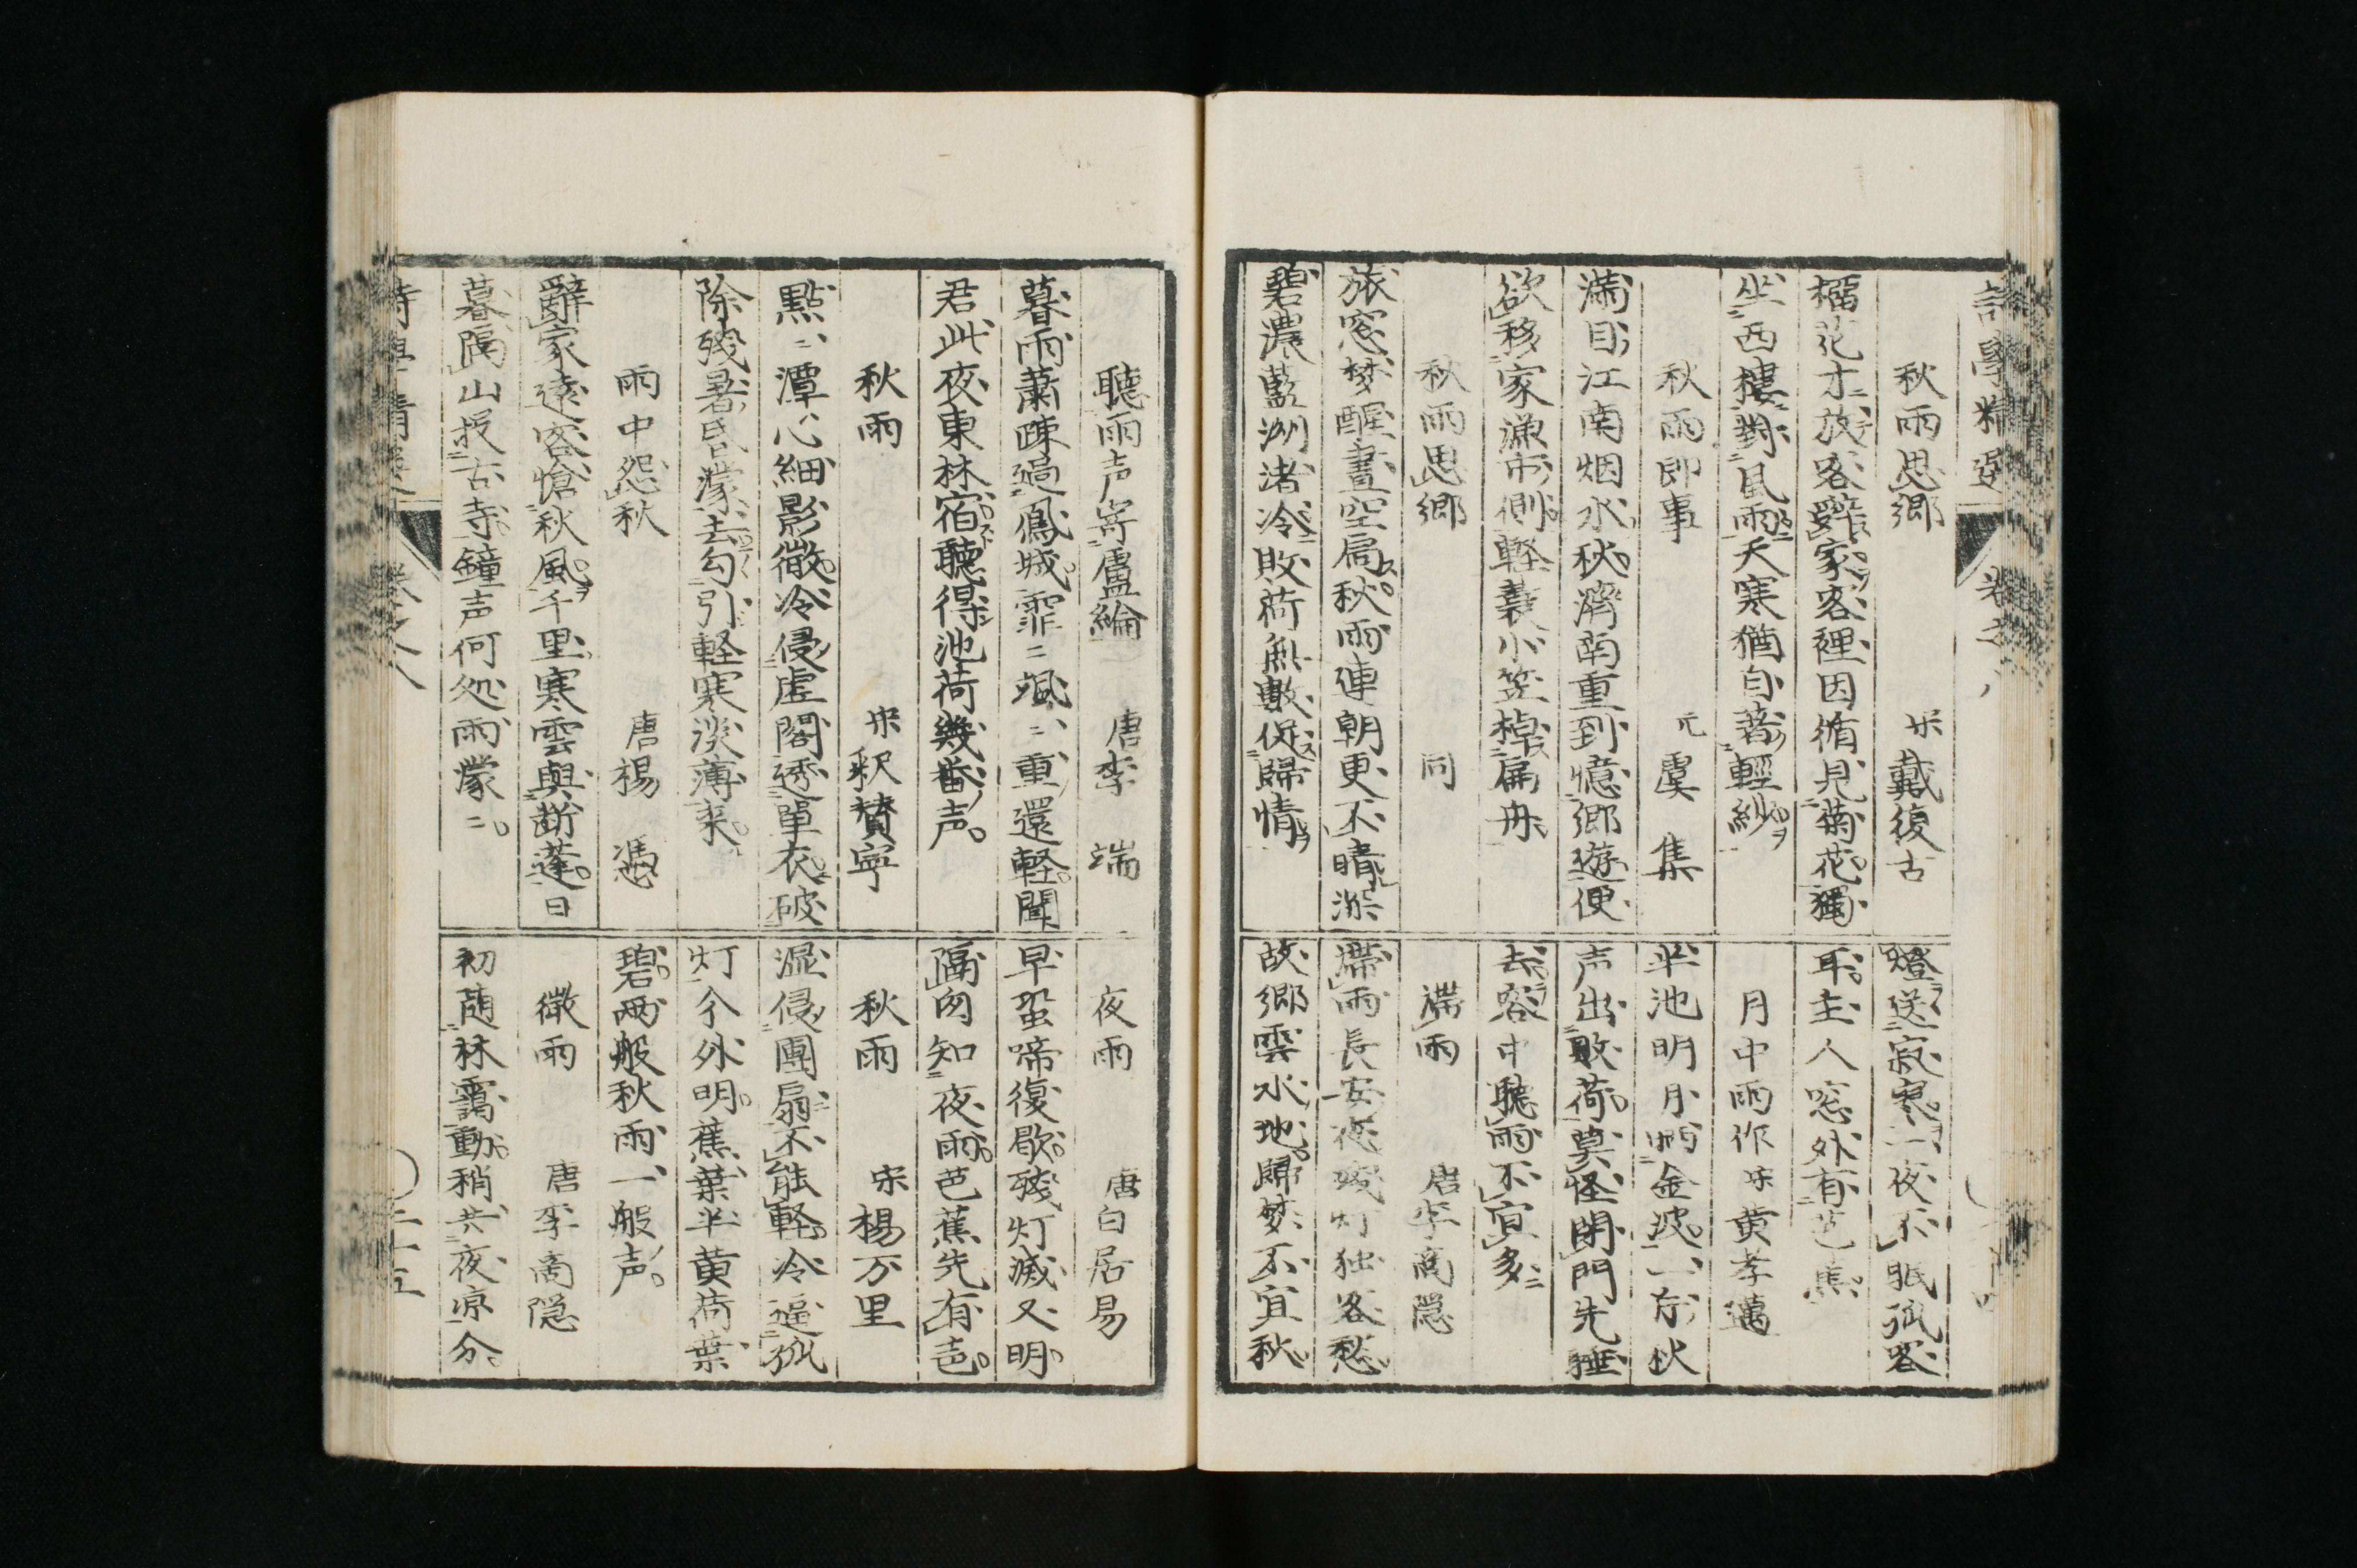 詩學精選 卷之八
秋雨思鄉 宋戴復古
榴花才放客辞家客裡因循見菊花獨
坐西樓對風雨天寒猶自著輕紗
秋雨即事 元虞集
満目江南烟水秋濟南重到憶郷遊便
欲移家漁市側軽蓑小笠棹扁舟
秋雨思郷 同
旅窓梦醒晝空扃秋雨連朝更不晴深
碧濃藍洲渚冷敗荷無數促歸情
燈送寂寒一夜不眠孤客
耳主人窓外有芭蕉
月中雨作 宋黄孝邁
半池明月晒金波一夜秋
声出敗荷莫怪閉門先睡
去客中聽雨不宜多
滞雨 唐李商隠
滞雨長安夜残灯独客愁
故郷雲水地歸梦不宜秋
聽雨声寄盧綸 唐李端
暮雨蕭疎過鳳城霏〻颯〻重還軽聞
君此夜東林宿聽得池荷幾番声
秋雨 宋釈賛寧
點〻潭心細影微冷侵虚閣透單衣破
除殘暑氏濛去勾引軽寒淡薄来
雨中怨秋 唐楊憑
辭家遠客愴秋風千里寒雲與断蓬日
暮隔山投古寺鐘声何処雨濛〻
夜雨 唐白居易
早蛩啼復歇残灯滅又明
隔囪知夜雨芭蕉先有声
秋雨 宋楊万里
湿侵團扇不能軽冷逼孤
灯分外明蕉葉半黄荷葉
碧兩般秋雨一般声
微雨 唐李商隠
初随林靄動稍共夜凉分
詩學精選 卷之八 二十五